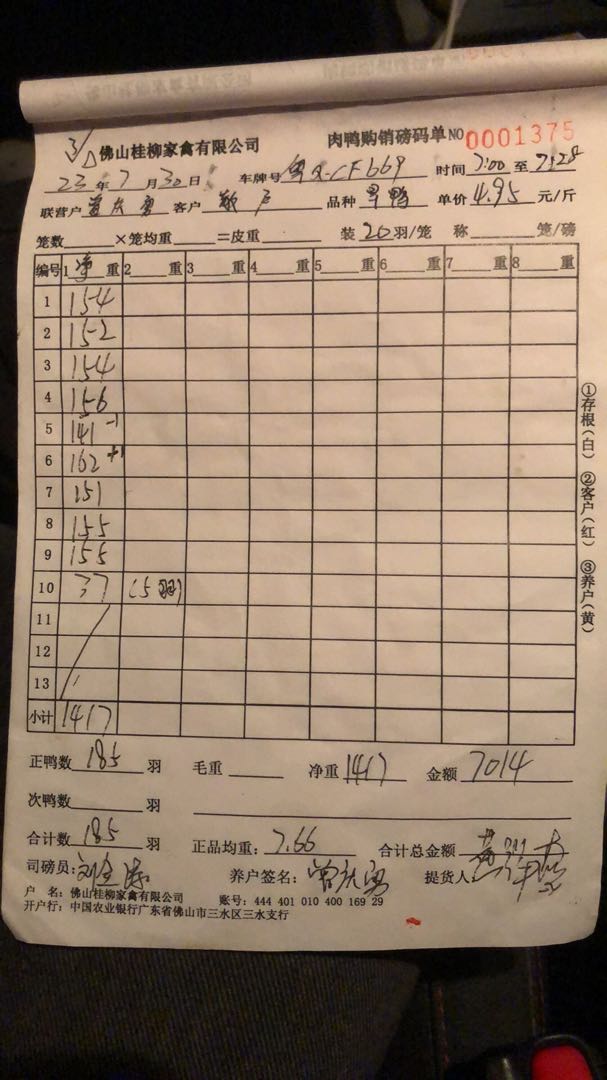 佛山桂柳家禽有限公司 肉鸭购销磅码单 NO 0001375
23年7月30日 车牌号 CF669 时间 7:00 至 7:28
联营户 曾庆勇 客户 品种 旱鸭 单价 4.95 元/斤
笼数 ×笼均重 =皮重 装 20 羽/笼 称 笼/磅
编号 1 净重 2 重 3 重 4 重 5 重 6 重 7 重 8 重
1 154
2 152
3 154
4 156
5 141 -1
6 162 +1
7 151
8 155
9 155
10 37 (5羽)
11
12
13
小计 1417
①存根(白) ②客户(红) ③养户(黄)
正鸭数 185 羽 毛重 净重 1417 金额 7014
次鸭数 羽
合计数 185 羽 正品均重: 7.66 合计总金额
司磅员: 养户签名: 曾庆勇 提货人:
户 名: 佛山桂柳家禽有限公司 账号: 444 401 010 400 169 29
开户行: 中国农业银行广东省佛山市三水区三水支行